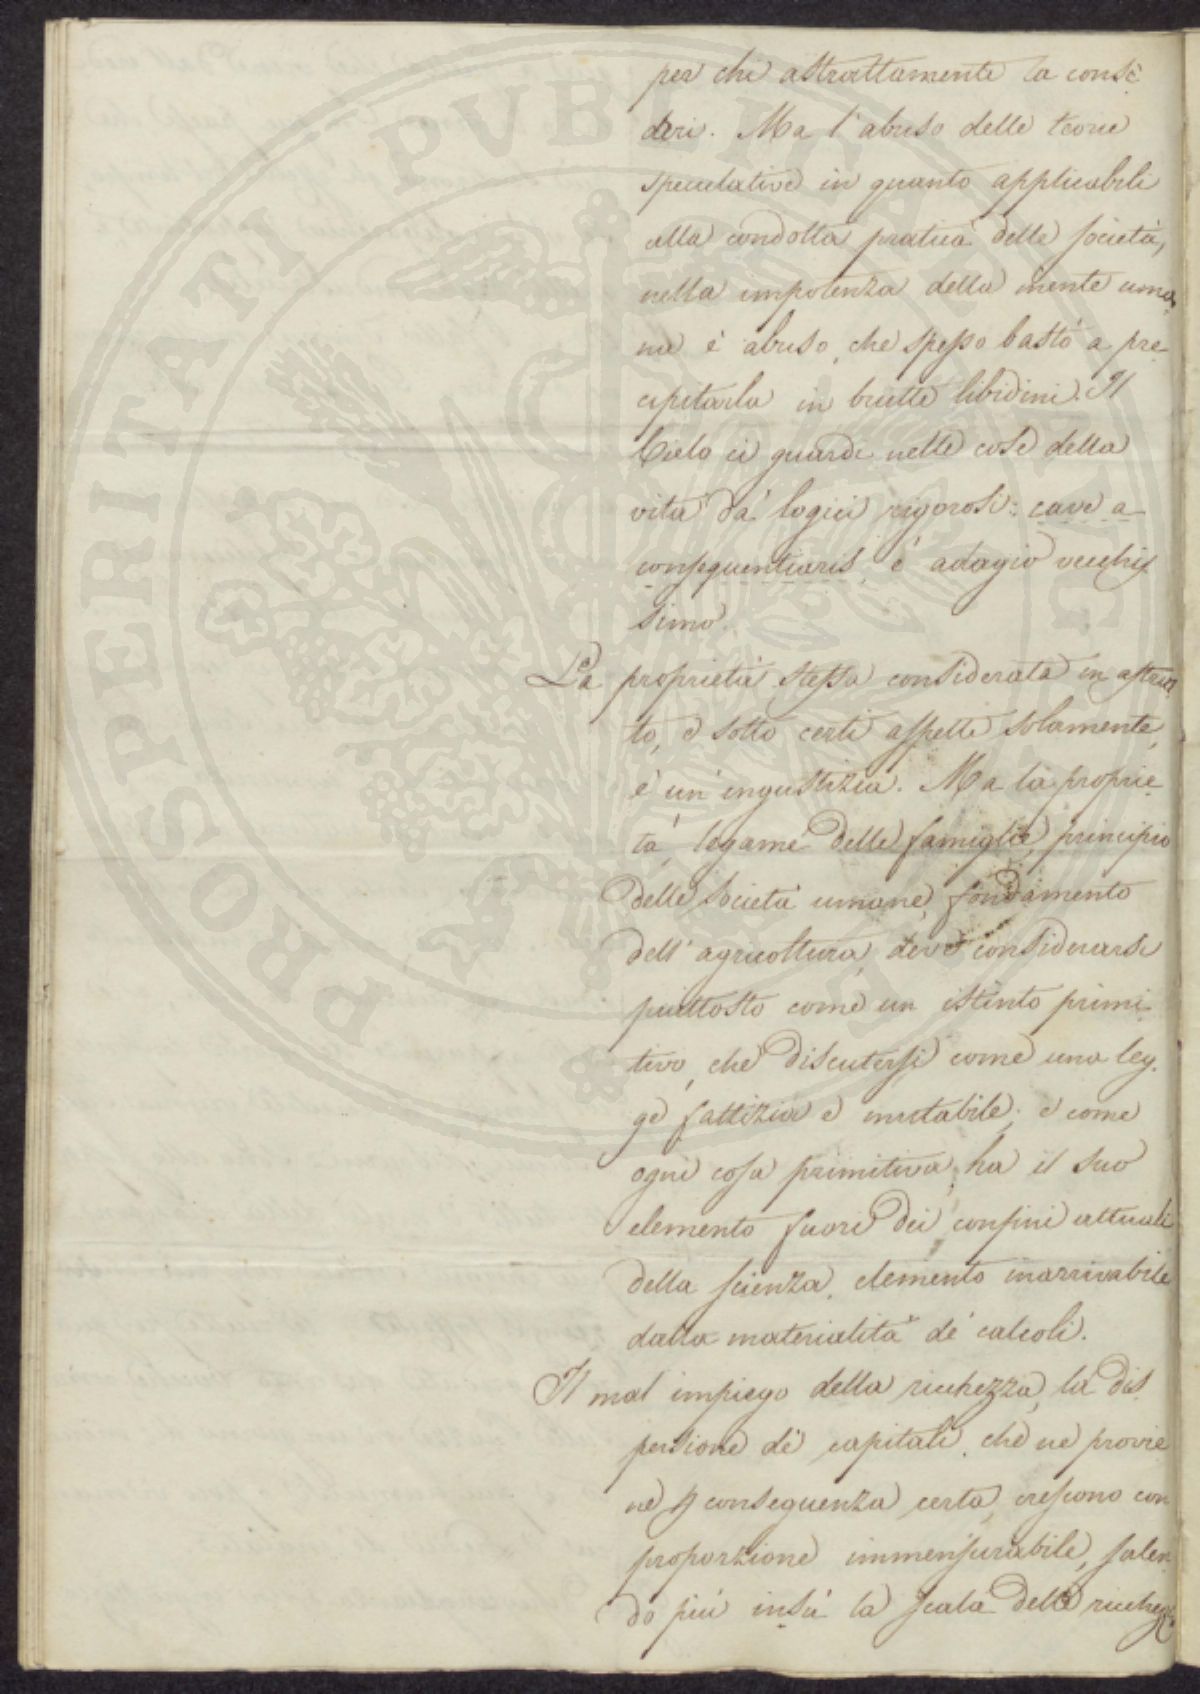 per chi astrattamente la consi
deri. Ma l'abuso delle teorie
speculative in quanto applicabili
alla condotta pratica delle società,
nella impotenza della mente uma
na è abuso, che spesso bastò a pre
cipitarla in brutte libidini. Il
Cielo ci guardi nelle cose della
vita da' logici rigorosi: cave a
consequentiariis, è adagio vecchis
simo.
La proprietà stessa considerata in astrat
to, e sotto certi aspetti solamente,
è un'ingustizia. Ma la proprie
tà, legame delle famiglie, principio
delle società umane, fondamento
dell'agricoltura, deve considerarsi
piuttosto come un istinto primi
tivo, che discutersi come una leg
ge fattizia e mutabile; e come
ogni cosa primitiva, ha il suo
elemento fuori dei confini attuali
della scienza, elemento inarrivabile
dalla materialità de' calcoli.
Il mal impiego della ricchezza, la dis
persione de' capitali, che ne provie
ne p conseguenza certa, crescono con
proporzione immensurabile, salen
do più insù la scala delle ricchez
PROSPERITATI PVBLICAE